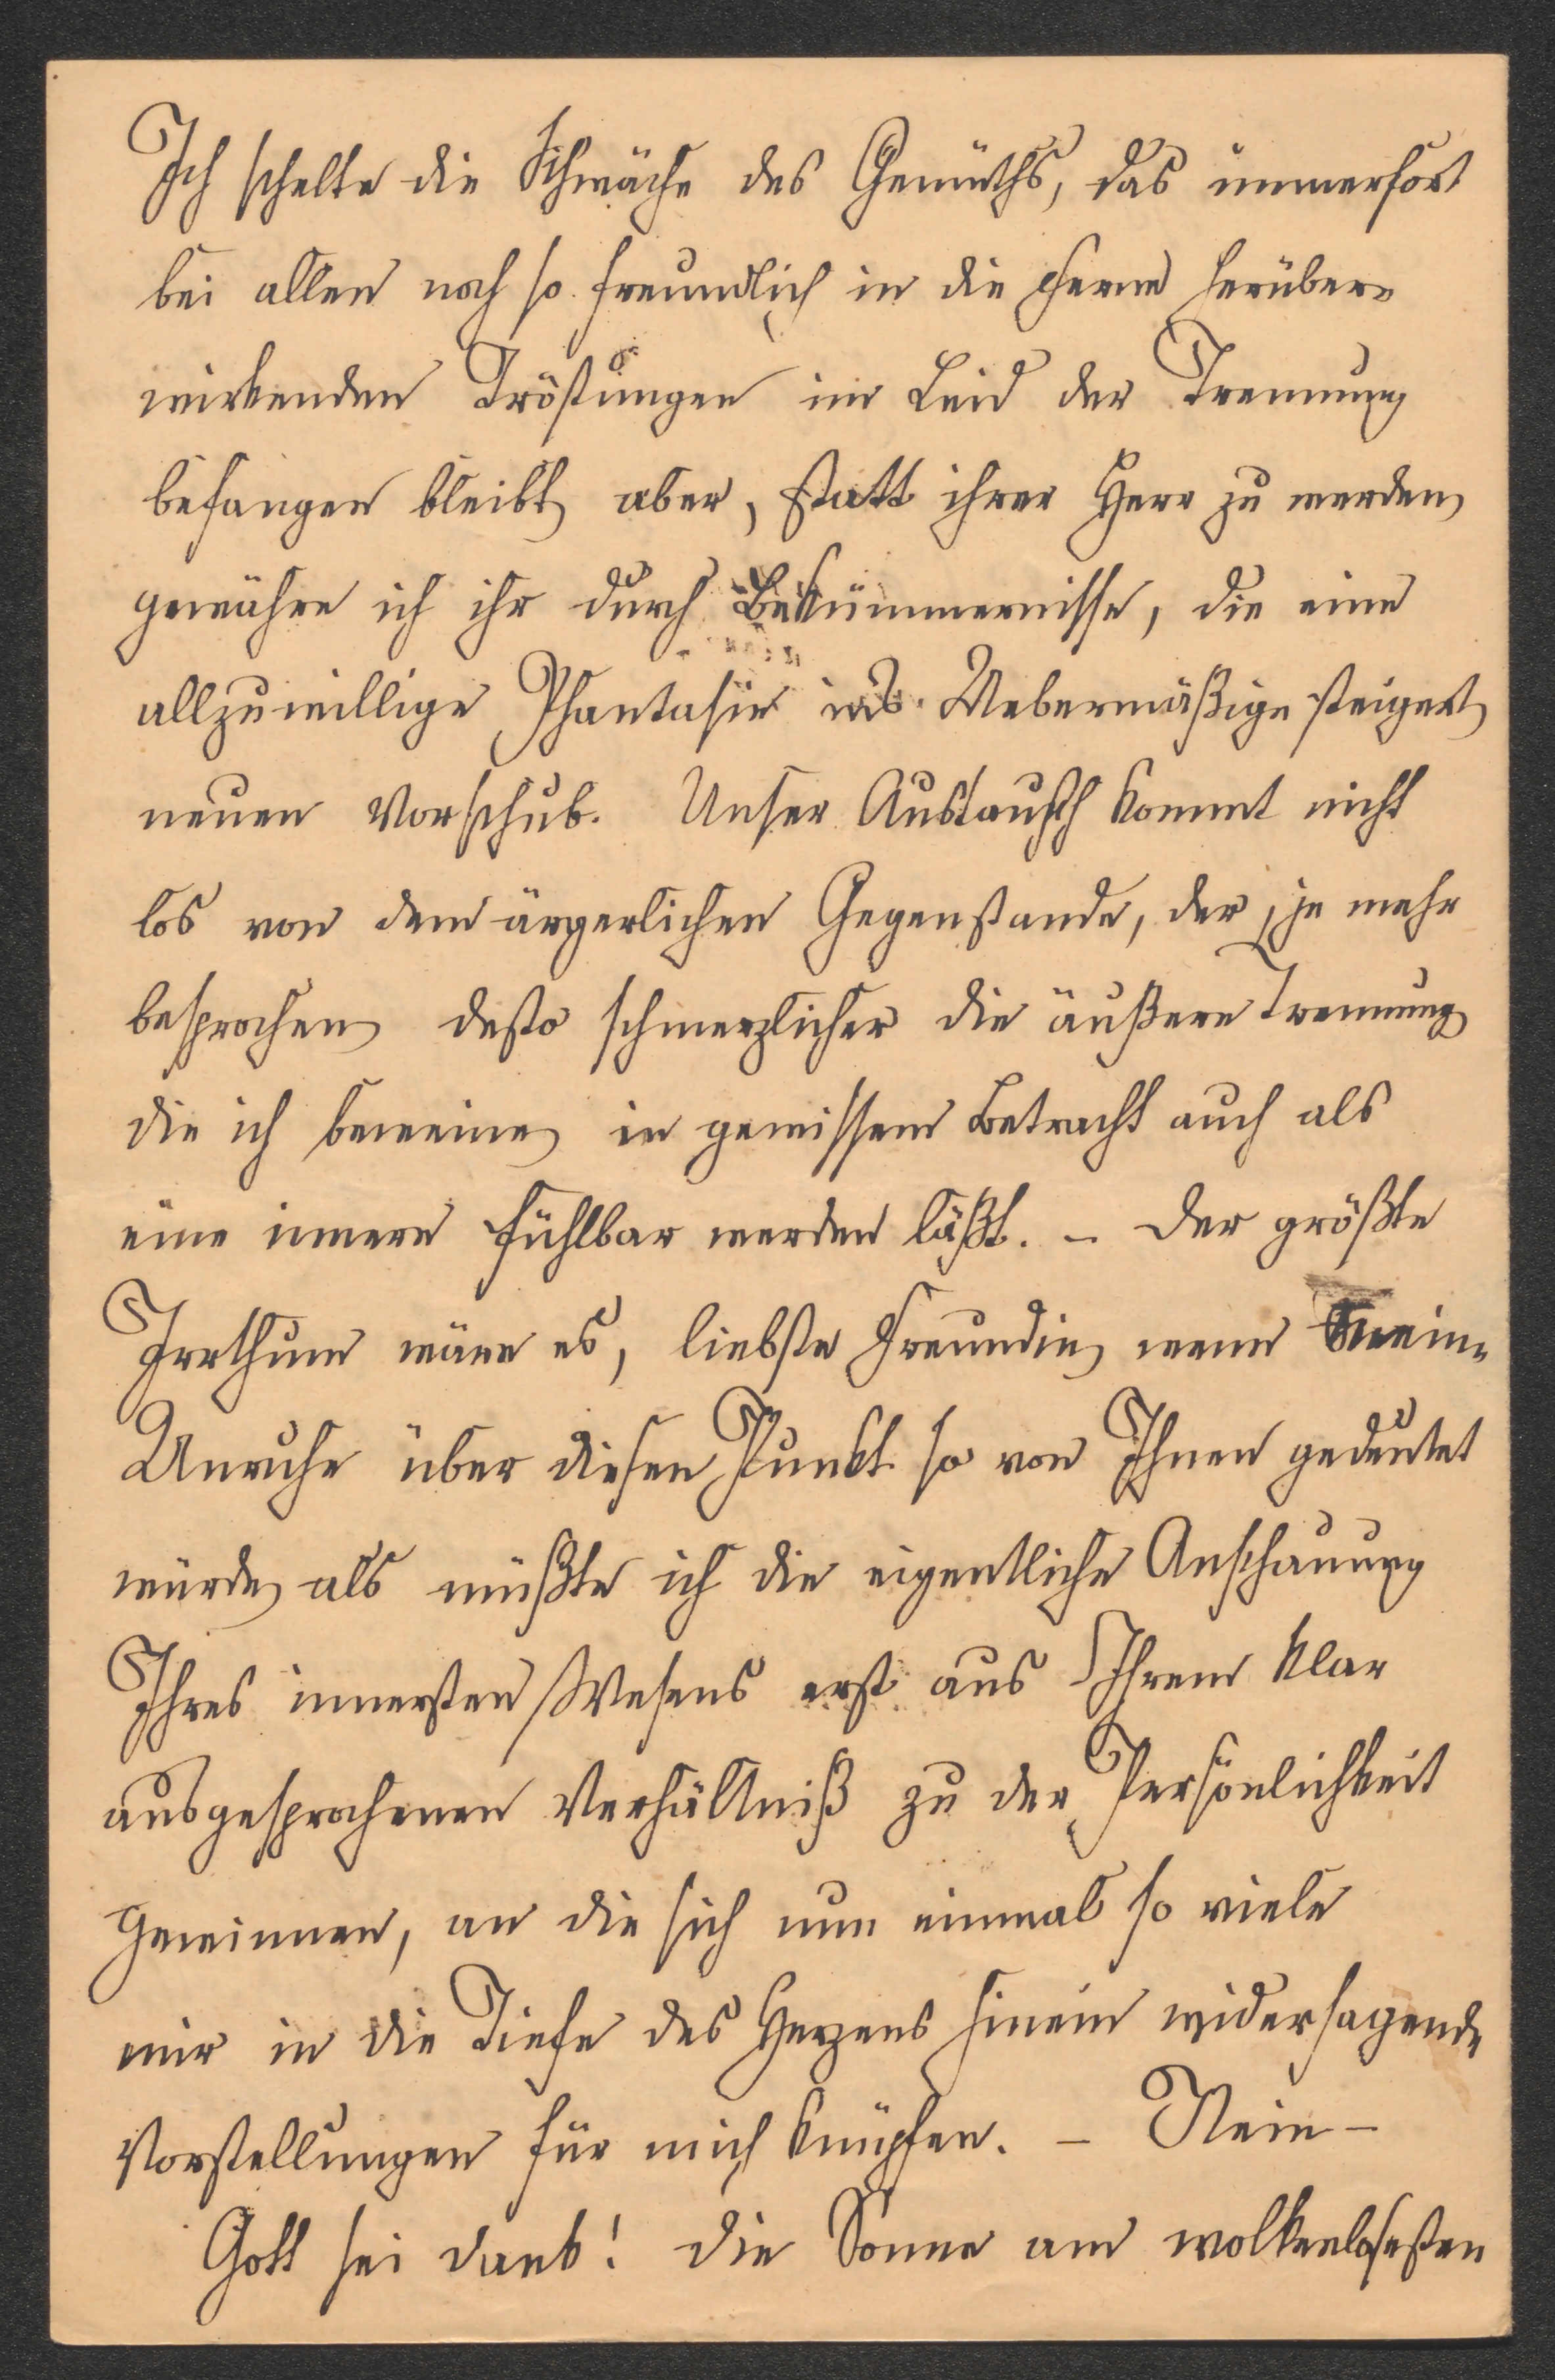 Ich schelte die Schwäche des Gemüths, das immerfort
bei allen noch so freundlich in die Ferne herüber-
wirkenden Tröstungen im Leid der Trennung
befangen bleibt, aber, statt ihrer Herr zu werden,
gewähre ich ihr durch Bekümmernisse, die eine
allzuwillige Phantasie ins Uebermäßige steigert,
neuen Vorschub. Unser Austausch kommt nicht
los von dem ärgerlichen Gegenstande, der, je mehr
besprochen, desto schmerzlicher die äußere Trennung,
die ich beweine, in gewissem Betracht auch als
eine innere fühlbar werden läßt. – Der größte
Irrthum wäre es, liebste Freundin, wenn meine
Unruhe über diesen Punkt so von Ihnen gedeutet
würde, als müßte ich die eigentliche Anschauung
Ihres innersten Wesens erst aus Ihrem klar
ausgesprochenen Verhältniß zu der Persönlichkeit
gewinnen, an die sich nun einmal so viele
mir in die Tiefe des Herzens hinein widersagende
Vorstellungen für mich knüpfen. – Nein –
Gott sei Dank! die Sonne am wolkenlosesten